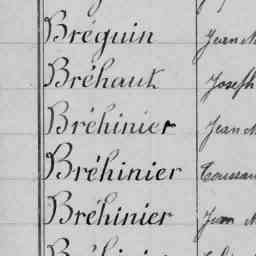 Bréguin Jean M
Bréhaut Joseph
Bréhinier Jean M
Bréhinier Toussai
Bréhinier Jean M
Bréhinier